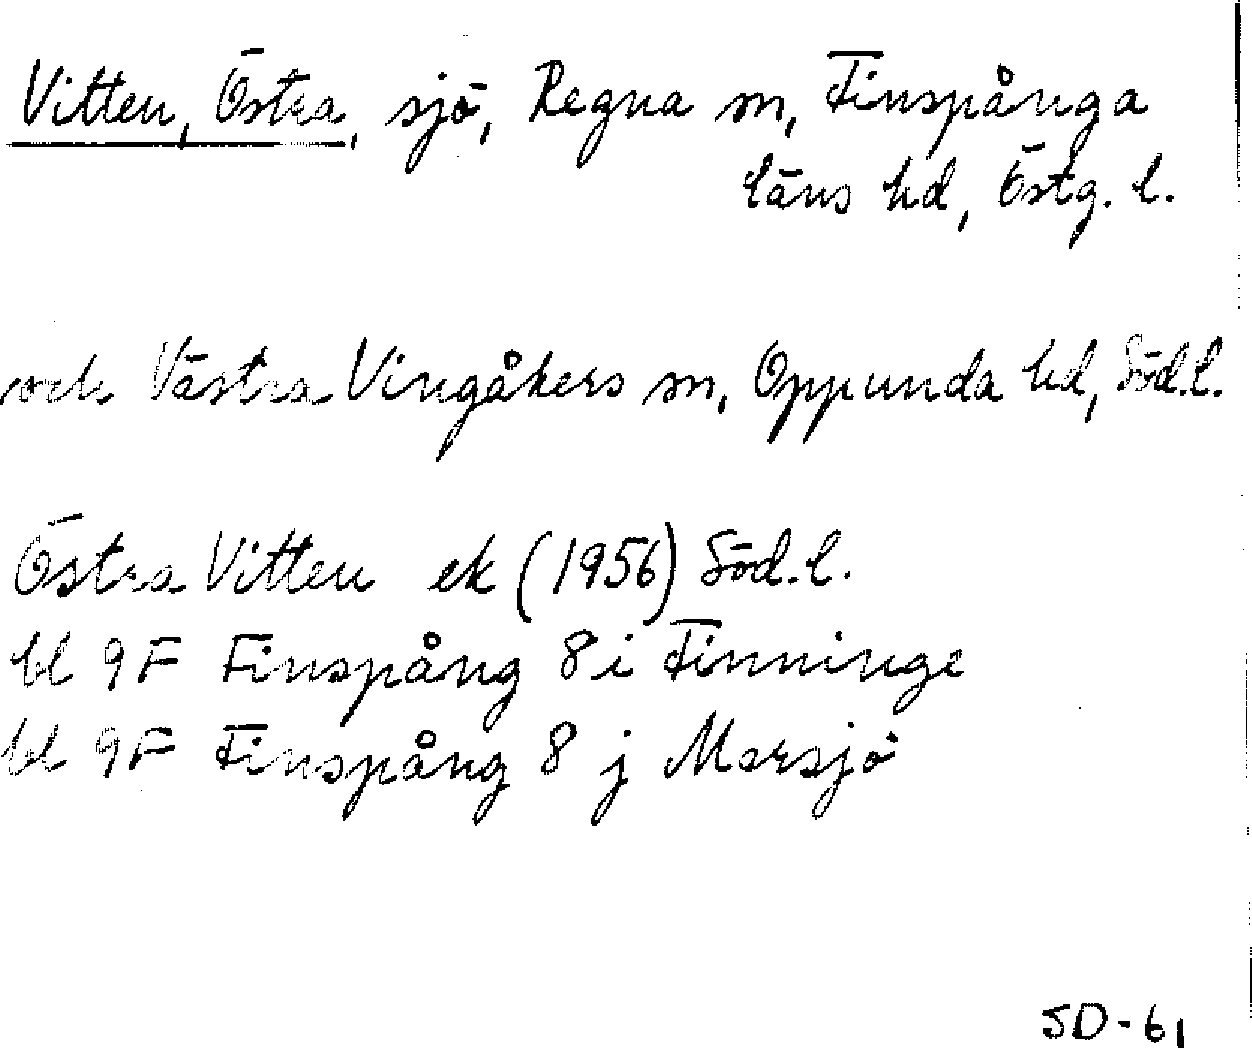 Vitten, Östra, sjö, Regna sn, Finspånga
läns hd, Östg. l.
och Västra Vingåkers sn, Oppunda hd, Söd.l.
Östra Vitten ek (1956) Söd.l.
bl 9F Finspång 8 i Finninge
bl 9F Finspång 8 j Marsjö
SD-61